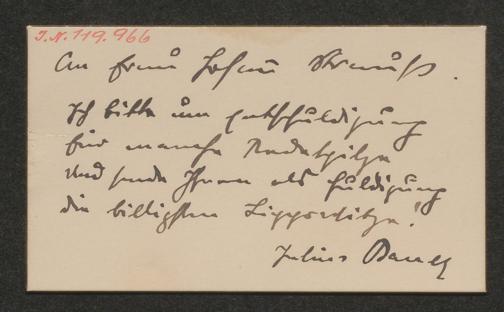 I.N. 119.966
An Frau Johann Strauß.
Ich bitte um Entschuldigung
für manche Redespitze
Und sende Ihnen als Huldigung
die billigsten
Julius Bauer